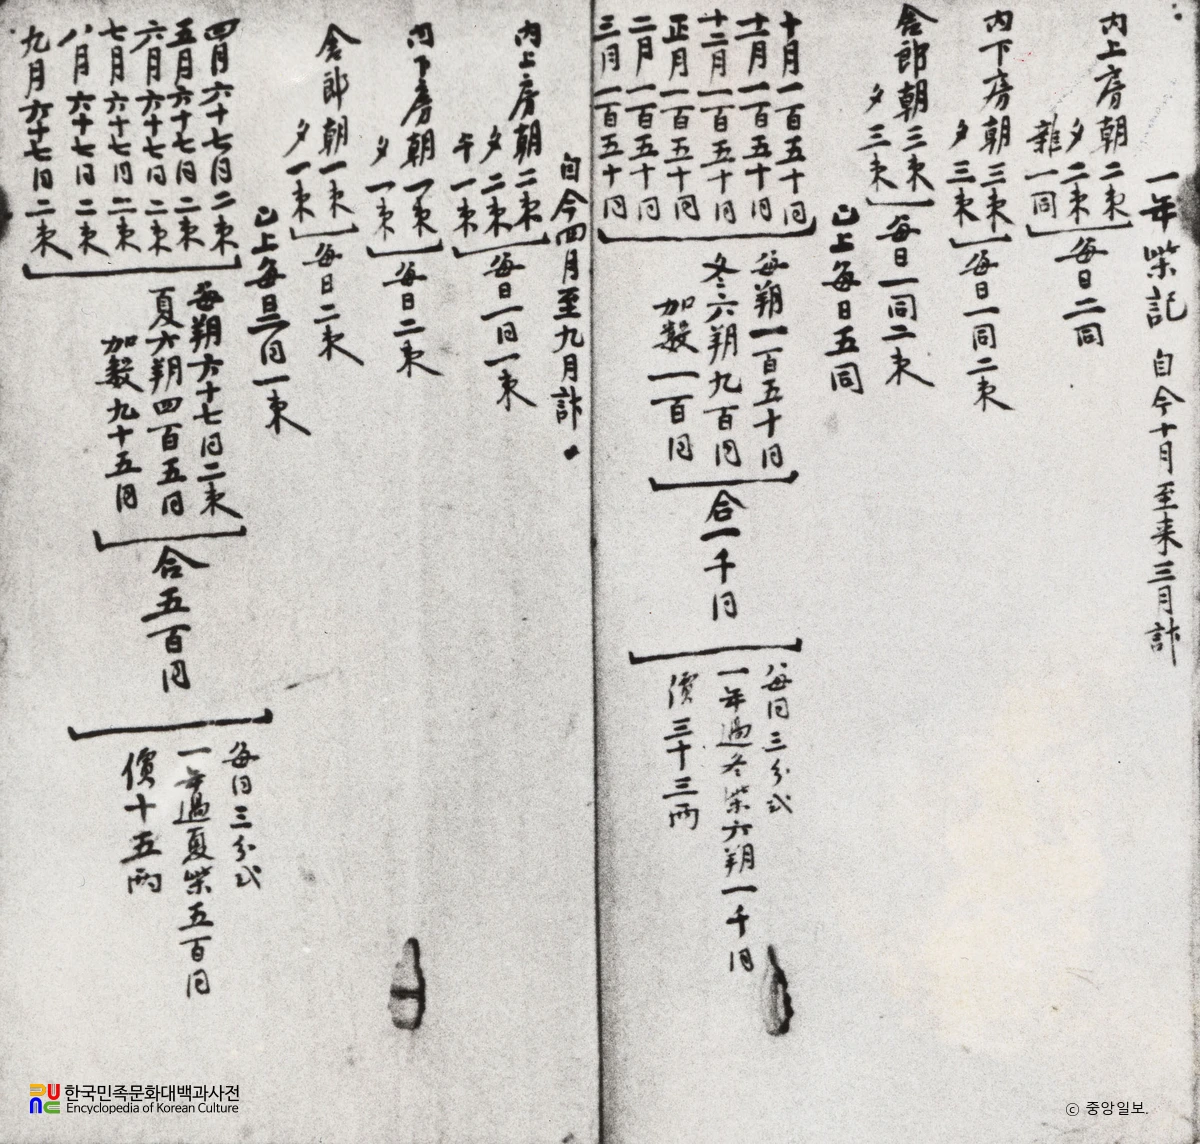 一年柴記 自今十月至来三月計
内上房朝二束
夕二束
雜一同
每日二同
内下房朝三束
夕三束
每日一同二束
舍郎朝三束
夕三束
每日一同二束
已上每日五同
十月一百五十同
十一月一百五十同
十二月一百五十同
正月一百五十同
二月一百五十同
三月一百五十同
每朔一百五十同
冬六朔九百同
加數一百同
合一千同
每同三分式
一年過冬柴六朔一千同
價三十三兩
自今四月至九月計
内上房朝二束
夕二束
午一束
每日一同一束
内下房朝一束
夕一束
每日二束
舍郎朝一束
夕一束
每日二束
已上每日二同一束
四月六十七同二束
五月六十七同二束
六月六十七同二束
七月六十七同二束
八月六十七同二束
九月六十七同二束
每朔六十七同二束
夏六朔四百五同
加數九十五同
合五百同
每同三分式
一年過夏柴五百同
價十五兩
한국민족문화대백과사전
Encyclopedia of Korean Culture
ⓒ 중앙일보.